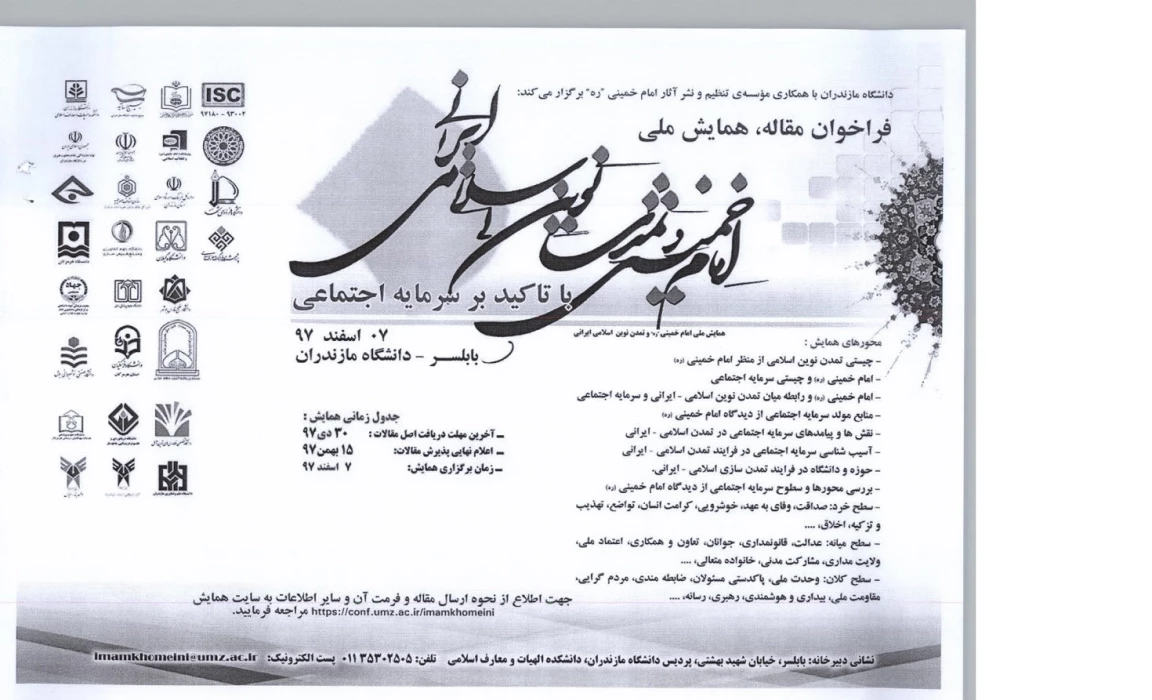 دانشگاه مازندران با همکاری مؤسسه‌ی تنظیم و نشر آثار امام خمینی "ره" برگزار می‌کند:
فراخوان مقاله، همایش ملی
امام خمینی و تمدن نوین اسلامی ایرانی
با تاکید بر سرمایه اجتماعی
همایش ملی امام خمینی "ره" و تمدن نوین اسلامی ایرانی
۰۷ اسفند ۹۷
بابلسر - دانشگاه مازندران
محورهای همایش :
- چیستی تمدن نوین اسلامی از منظر امام خمینی (ره)
- امام خمینی (ره) و چیستی سرمایه اجتماعی
- امام خمینی (ره) و رابطه میان تمدن نوین اسلامی - ایرانی و سرمایه اجتماعی
- منابع مولد سرمایه اجتماعی از دیدگاه امام خمینی (ره)
- نقش ها و پیامدهای سرمایه اجتماعی در تمدن اسلامی - ایرانی
- آسیب شناسی سرمایه اجتماعی در فرایند تمدن اسلامی - ایرانی
- حوزه و دانشگاه در فرایند تمدن سازی اسلامی - ایرانی.
- بررسی محورها و سطوح سرمایه اجتماعی از دیدگاه امام خمینی (ره)
- سطح خرد: صداقت، وفای به عهد، خوشرویی، کرامت انسان، تواضع، تهذیب
و تزکیه، اخلاق، ....
- سطح میانه: عدالت، قانونمداری، جوانان، تعاون و همکاری، اعتماد ملی،
ولایت مداری، مشارکت مدنی، خانواده متعالی، ....
- سطح کلان: وحدت ملی، پاکدستی مسئولان، ضابطه مندی، مردم گرایی،
مقاومت ملی، بیداری و هوشمندی، رهبری، رسانه، ....
جدول زمانی همایش :
ـ آخرین مهلت دریافت اصل مقالات : ۳۰ دی۹۷
ـ اعلام نهایی پذیرش مقالات: ۱۵ بهمن۹۷
ـ زمان برگزاری همایش: ۷ اسفند ۹۷
ISC
۹۷۱۸۰ - ۹۳۰۰۲
جهت اطلاع از نحوه ارسال مقاله و فرمت آن و سایر اطلاعات به سایت همایش
https://conf.umz.ac.ir/imamkhomeini مراجعه فرمایید.
نشانی دبیرخانه: بابلسر، خیابان شهید بهشتی، پردیس دانشگاه مازندران، دانشکده الهیات و معارف اسلامی تلفن: ۰۱۱۳۵۳۰۲۵۰۵ پست الکترونیک: imamkhomeini@umz.ac.ir